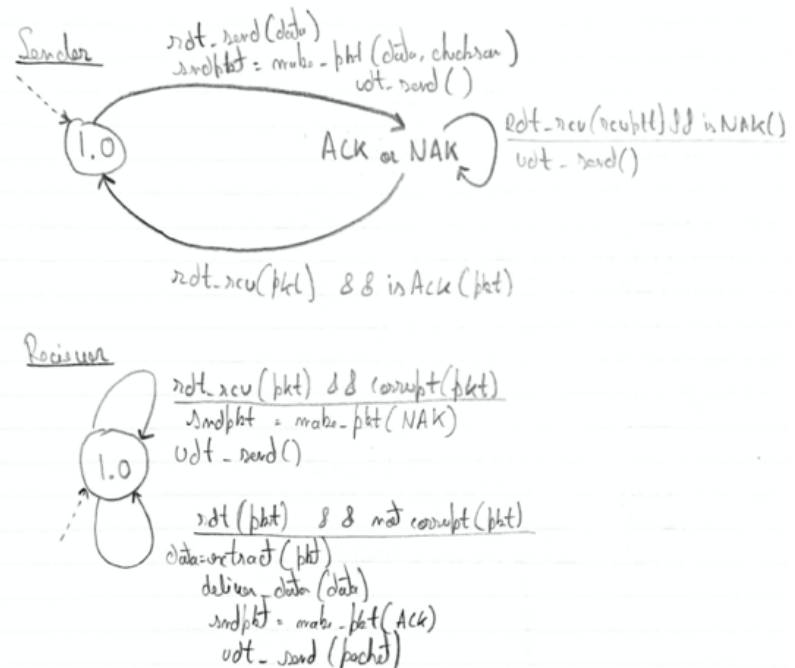 Sender
rdt_send(data)
sndpkt = make_pkt(data, checksum)
udt_send()
1.0
ACK or NAK
rdt_rcv(rcvpkt) && isNAK()
udt_send()
rdt_rcv(pkt) && isAck(pkt)
Reciever
rdt_rcv(pkt) && corrupt(pkt)
sndpkt = make_pkt(NAK)
udt_send()
1.0
rdt(pkt) && not corrupt(pkt)
data=extract(pkt)
deliver_data(data)
sndpkt = make_pkt(ACK)
udt_send(packet)